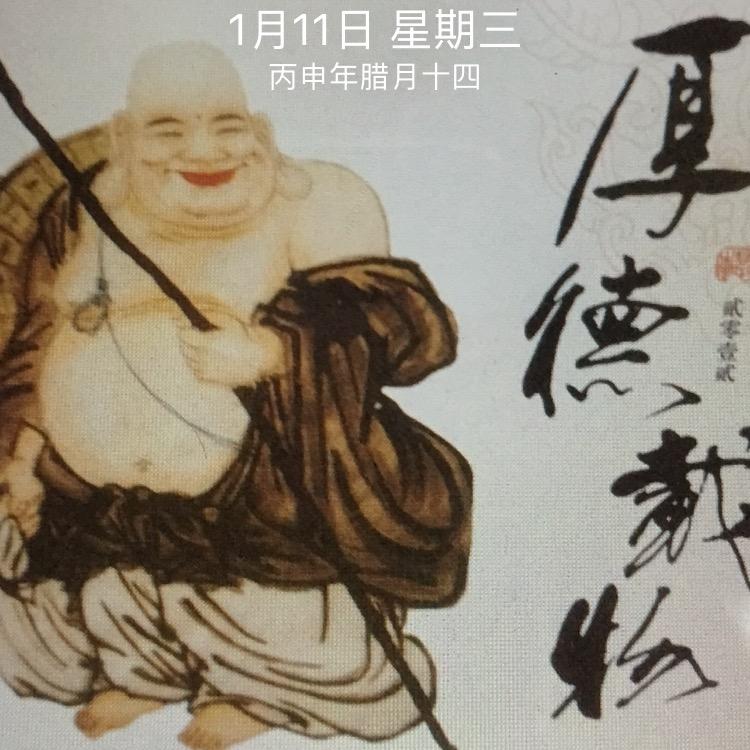 1月11日 星期三
丙申年腊月十四
厚德載物
贰零壹贰